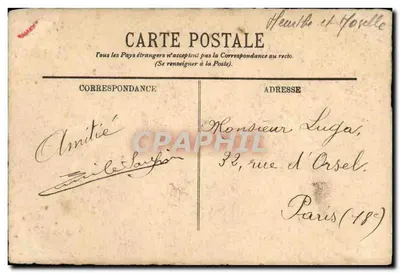 Meurthe et Moselle
CARTE POSTALE
Tous les Pays étrangers n'acceptent pas la Correspondance au recto.
(Se renseigner à la Poste).
CORRESPONDANCE
ADRESSE
Amitié
Monsieur Luga,
32, rue d'Orsel.
Paris (18e)
CPRPHIL.COM